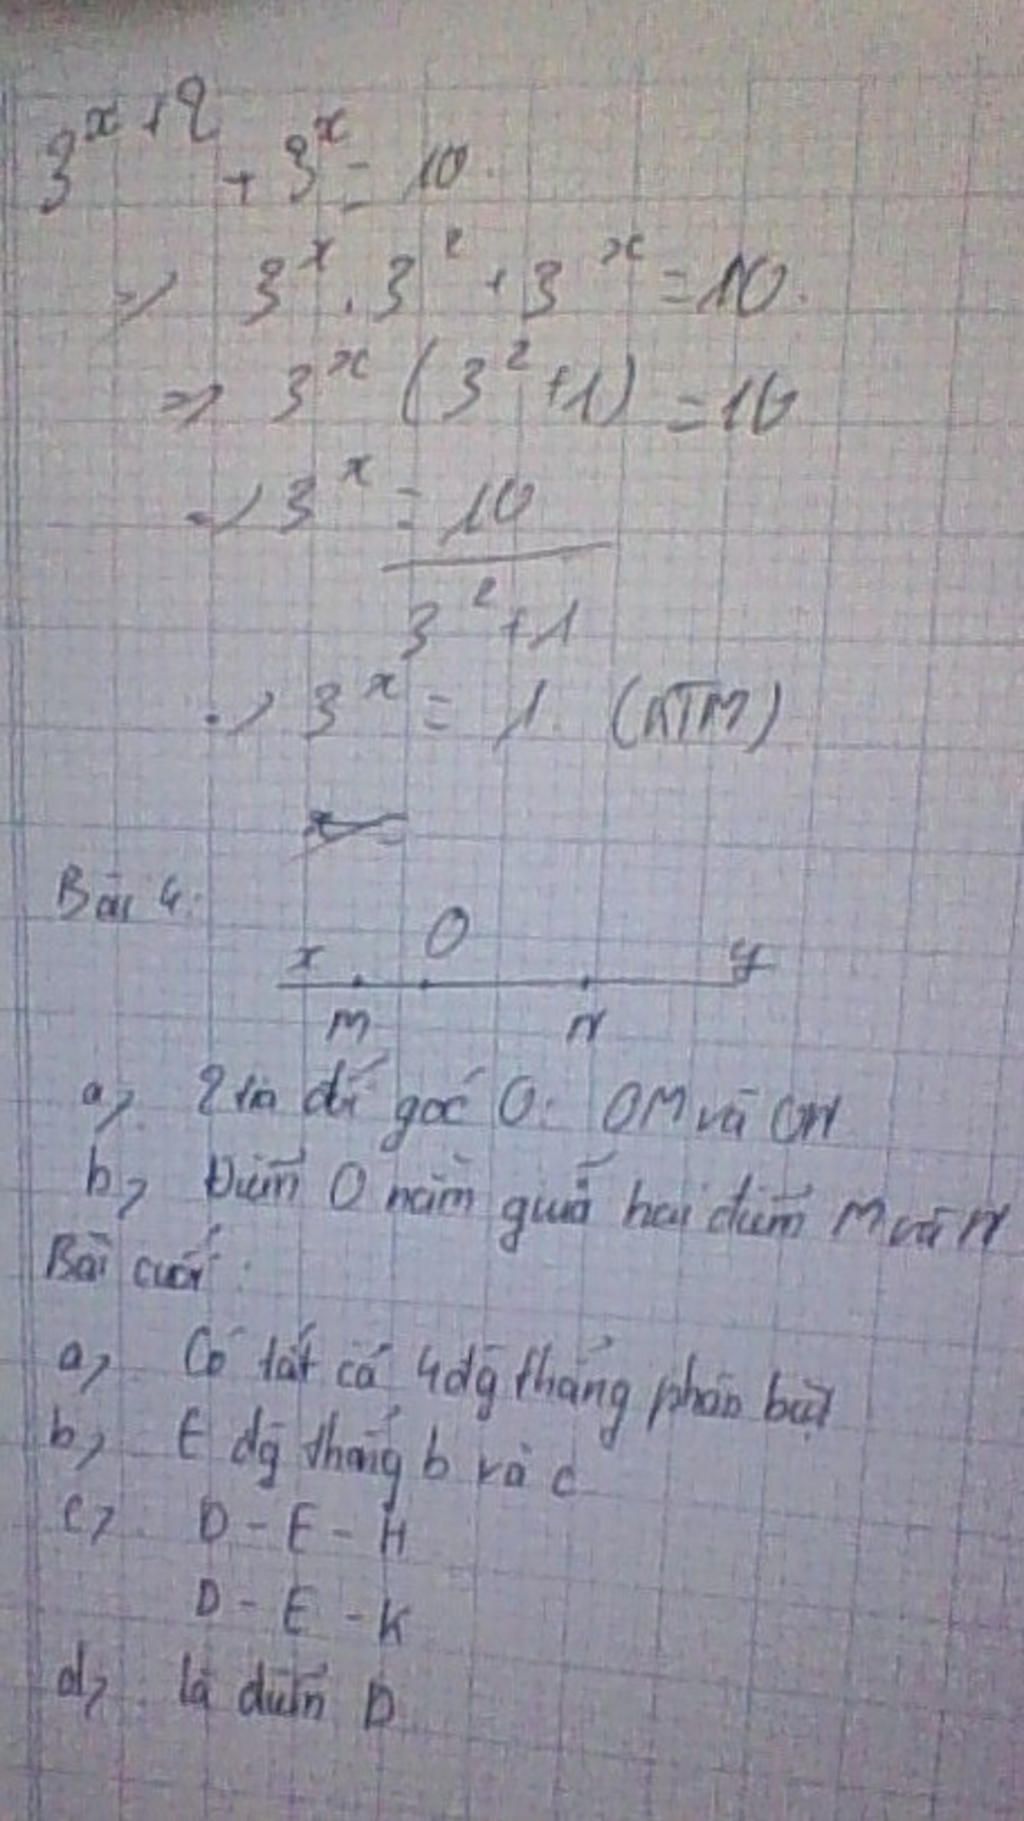 3^{x+2} + 3^x = 10.
=> 3^x . 3^2 + 3^x = 10.
=> 3^x (3^2 + 1) = 10
=> 3^x = 10
3^2 + 1
=> 3^x = 1. (KTM)
Bài 4:
O
x y
M N
a, 2 tia đối gốc O: OM và ON
b, Điểm O nằm giữa hai điểm M và N
Bài cuối:
a, Có tất cả 4 đg thẳng phân biệt
b, E đg thẳng b và c
c, D - E - H
D - E - K
d, là điểm D